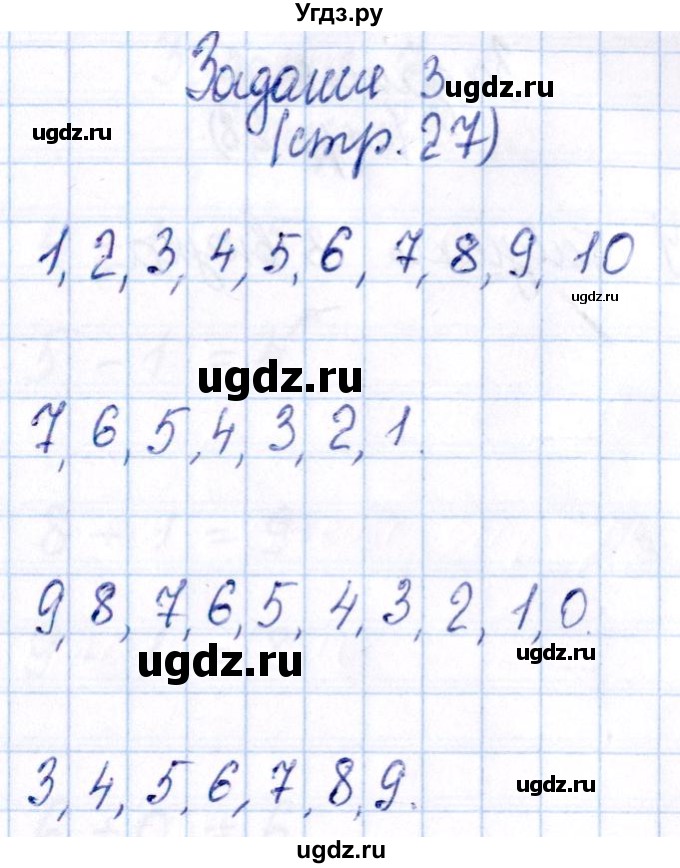 Угдз.ру
Задание 3
ugdz.ru
ugdz.ru
(стр. 27)
1, 2, 3, 4, 5, 6, 7, 8, 9, 10
ugdz.ru
ugdz.ru
7, 6, 5, 4, 3, 2, 1.
9, 8, 7, 6, 5, 4, 3, 2, 1, 0.
ugdz.ru
ugdz.ru
3, 4, 5, 6, 7, 8, 9.
ugdz.ru
ugdz.ru